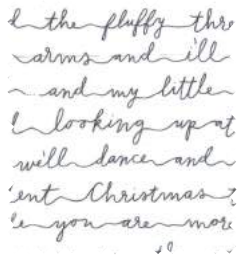 the fluffy thre
arms and ill
and my little
looking up at
we'll dance and
ent Christmas
e you are more